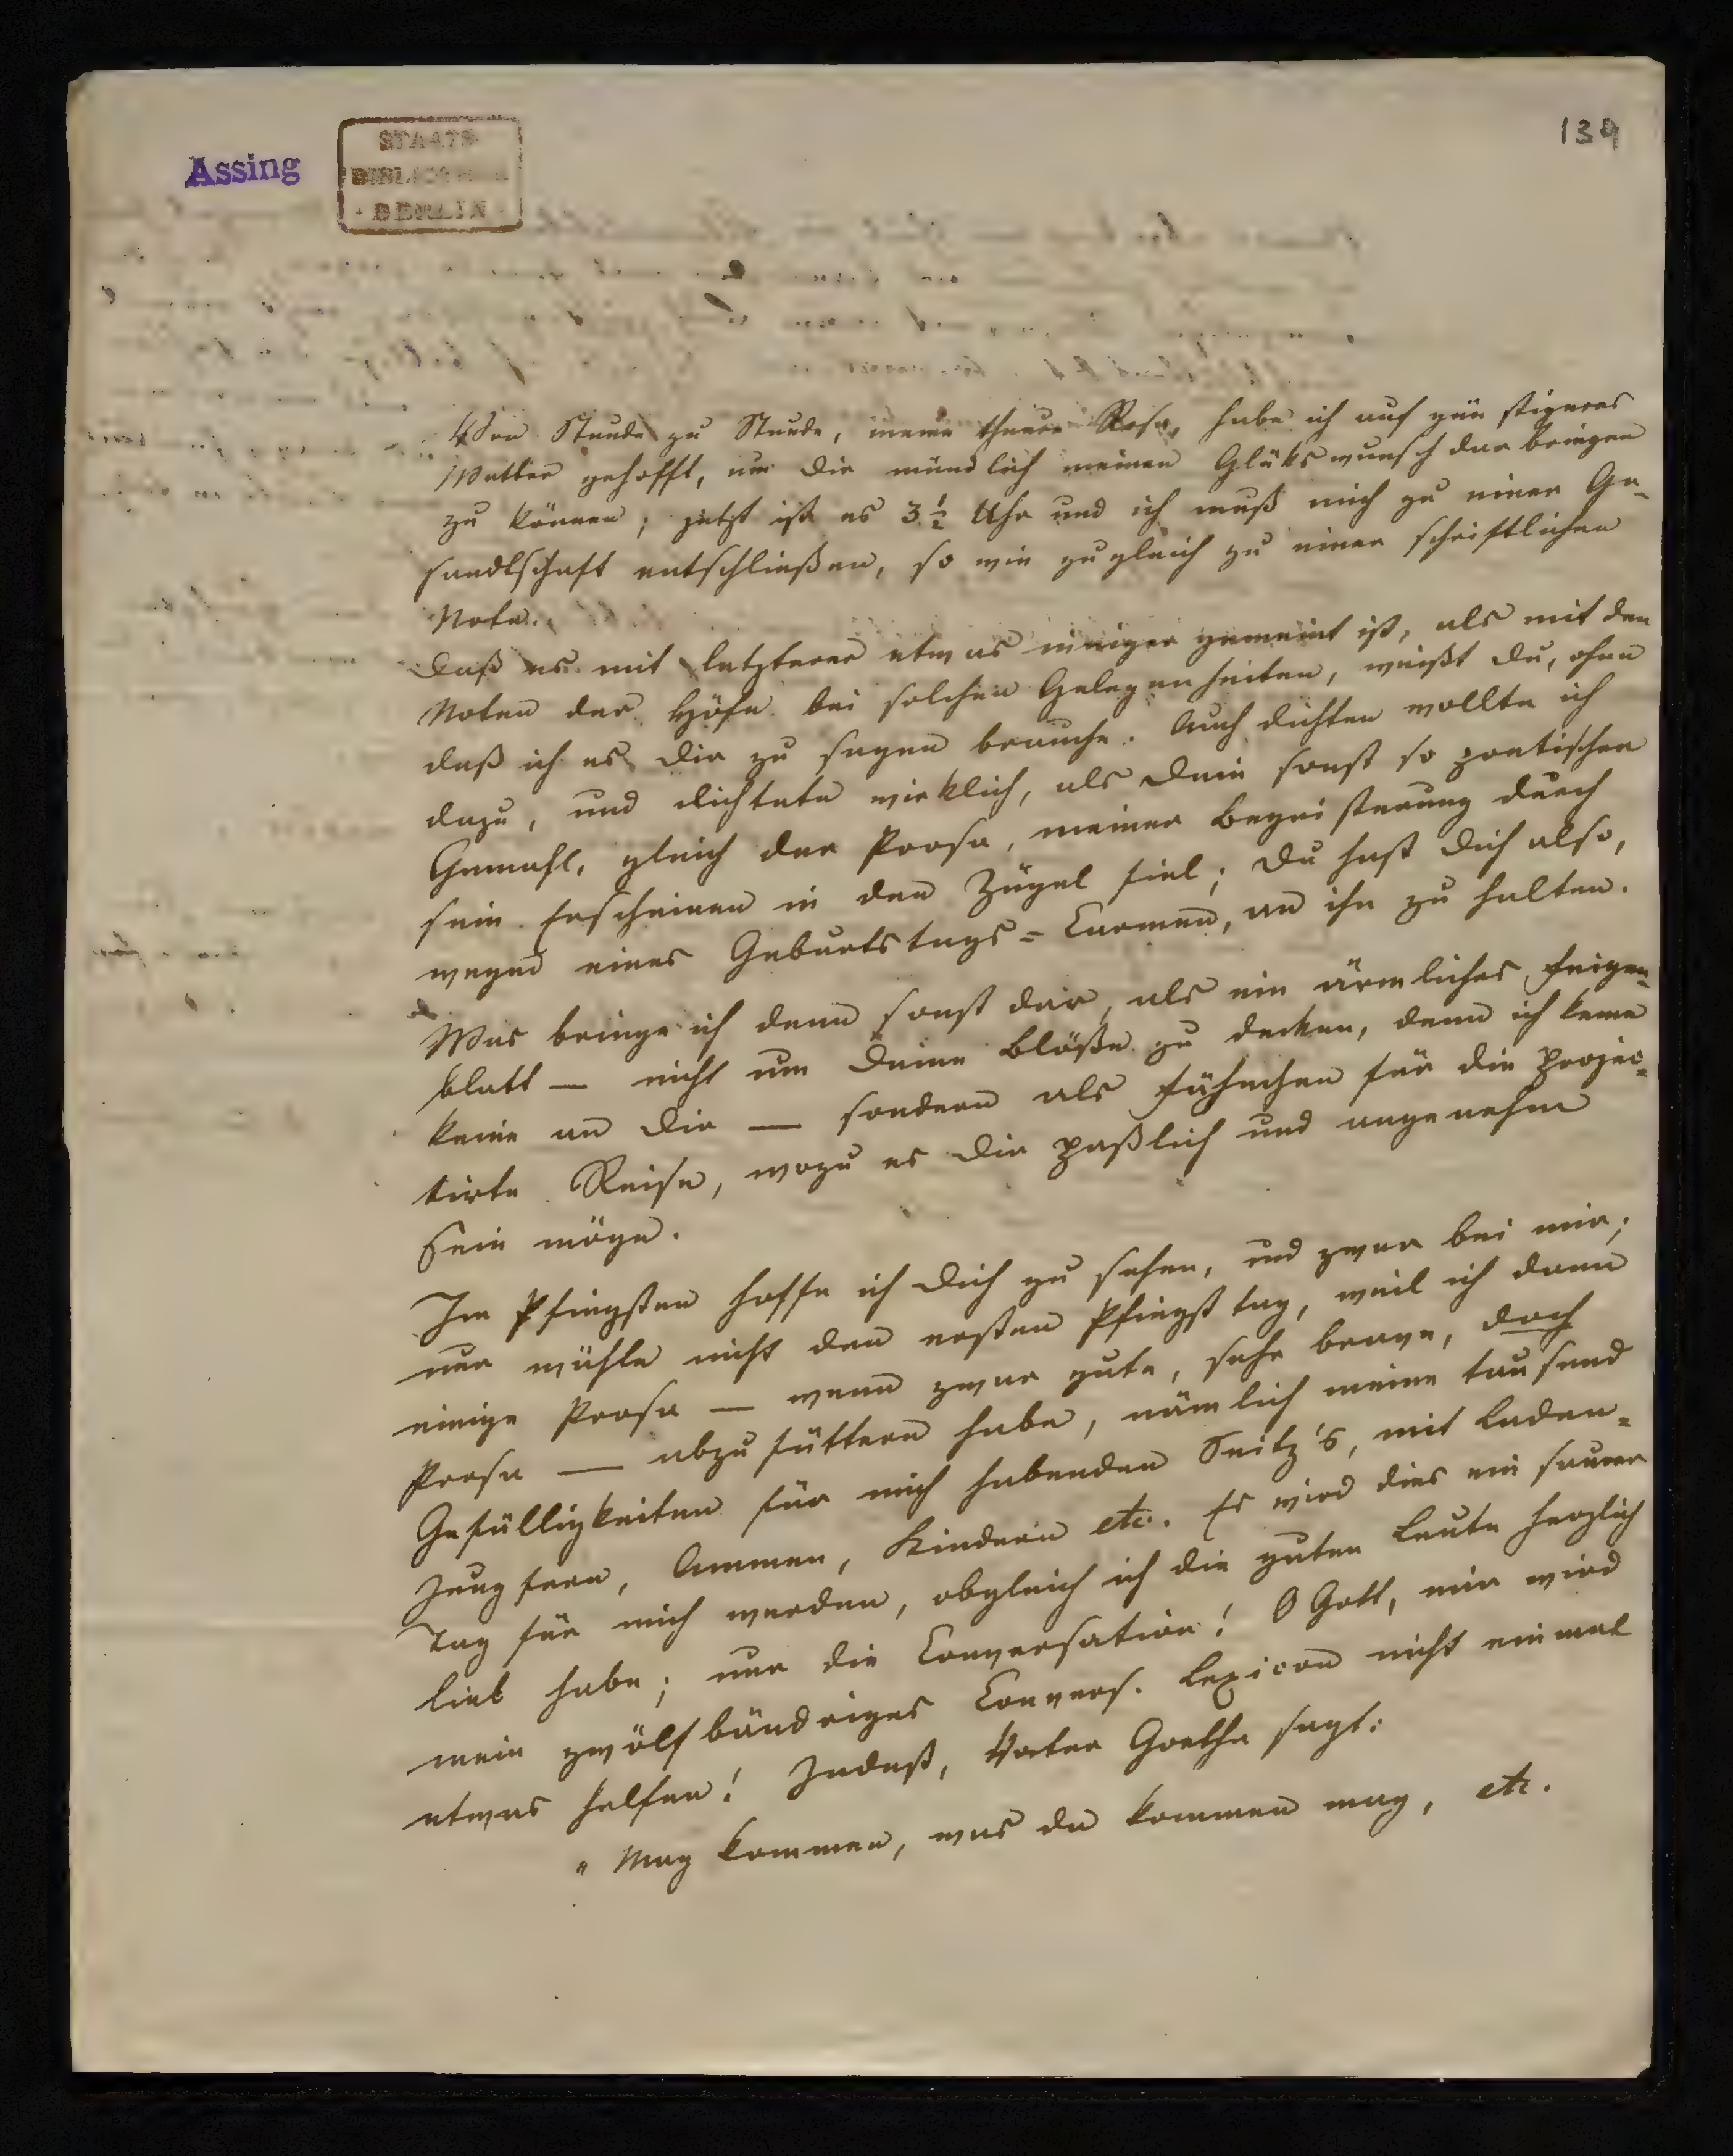 139
Assing
STAATS
BIBLIOTHEK
BERLIN
Von Stunde zu Stunde, meine theure Rosa, habe ich auf günstigeres
Wetter gehofft, um Dir mündlich meinen Glükswunsch darbringen
zu können; jetzt ist es 3 1/2 Uhr und ich muß mich zu einer Ge-
sandtschaft entschließen, so wie zugleich zu einer schriftlichen
Note.
Daß es mit letzterer etwas inniger gemeint ist, als mit den
Noten der Höfe bei solchen Gelegenheiten, weißt Du, ohne
daß ich es Dir zu sagen brauche. Auch dichten wollte ich
dazu, und dichtete wirklich, als Dein sonst so poetischer
Gemahl, gleich der Prosa, meiner Begeisterung durch
sein Erscheinen in den Zügel fiel; Du hast Dich also,
wegen eines Geburtstags=Carmen, an ihn zu halten.
Was bringe ich denn sonst dar, als ein ärmliches Feigen-
blatt — nicht um Deine Blöße zu decken, denn ich kenne
keine an Dir — sondern als Fähnchen für die projec-
tirte Reise, wozu es Dir paßlich und angenehm
sein möge.
Im Pfingsten hoffe ich Dich zu sehen, und zwar bei mir;
nur wähle nicht den ersten Pfingsttag, weil ich dann
einige Prosa — wenn zwar gute, sehr brave, doch
Prosa — abzufüttern habe, nämlich meine tausend
Gefälligkeiten für mich habenden Seitz's, mit Laden=
Jungfern, Ammen, Kindern etc. Es wird dies ein saurer
Tag für mich werden, obgleich ich die guten Leute herzlich
lieb habe; nur die Conversation! O Gott, mir wird
mein zwölfbändriges Convers. Lexicon nicht einmal
etwas helfen! Indeß, Vater Goethe sagt:
"Mag kommen, was da kommen mag, etc.